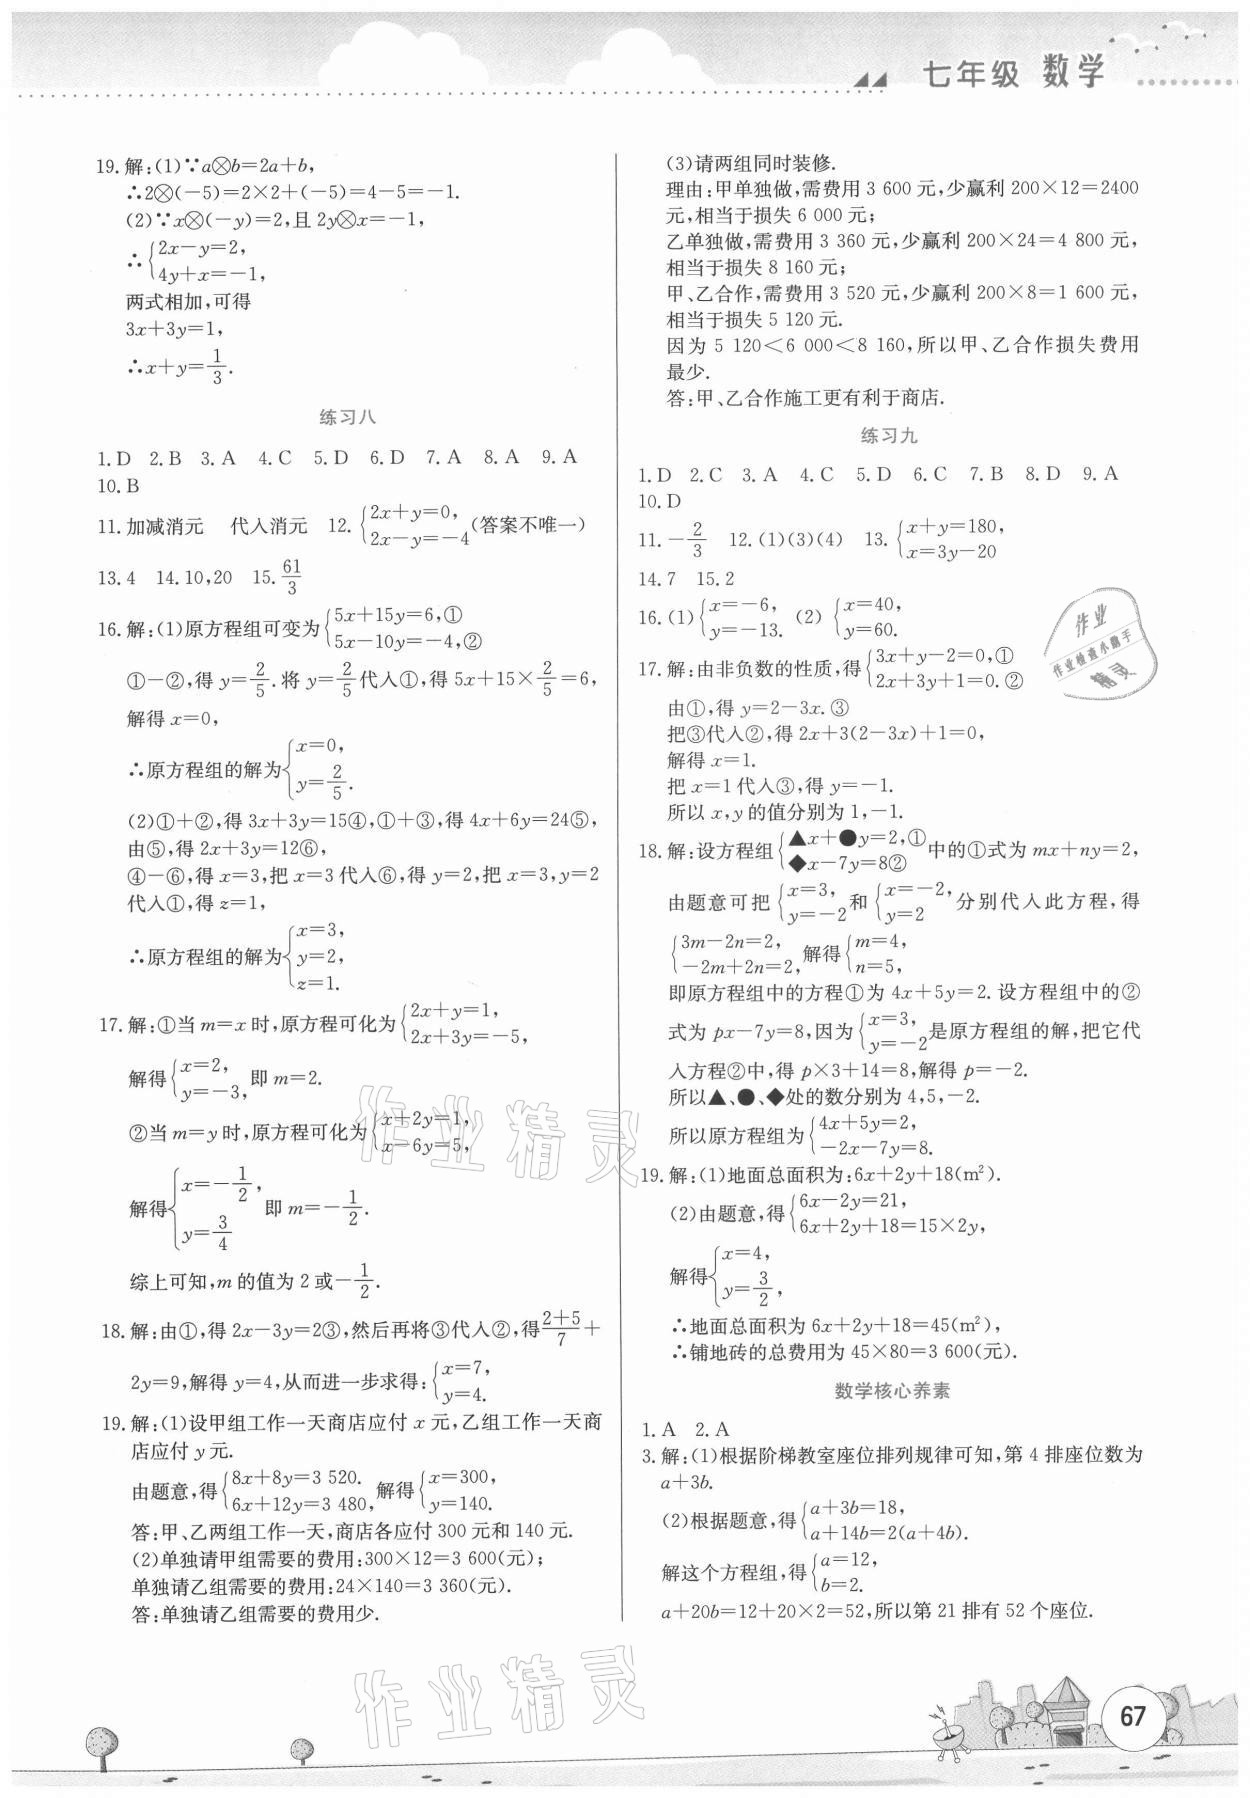 七年级 数学
19.解:(1)∵a⊗b=2a+b,
∴2⊗(-5)=2×2+(-5)=4-5=-1.
(2)∵x⊗(-y)=2,且 2y⊗x=-1,
∴{2x-y=2,
4y+x=-1,
两式相加,可得
3x+3y=1,
∴x+y=1/3.
练习八
1.D 2.B 3.A 4.C 5.D 6.D 7.A 8.A 9.A
10.B
11.加减消元 代入消元 12.{2x+y=0, 2x-y=-4(答案不唯一)
13.4 14.10,20 15.61/3
16.解:(1)原方程组可变为{5x+15y=6,①
5x-10y=-4,②
①-②,得 y=2/5.将 y=2/5代入①,得 5x+15×2/5=6,
解得 x=0,
∴原方程组的解为{x=0,
y=2/5.
(2)①+②,得 3x+3y=15④,①+③,得 4x+6y=24⑤,
由⑤,得 2x+3y=12⑥,
④-⑥,得 x=3,把 x=3 代入⑥,得 y=2,把 x=3,y=2
代入①,得 z=1,
∴原方程组的解为{x=3,
y=2,
z=1.
17.解:①当 m=x 时,原方程可化为{2x+y=1,
2x+3y=-5,
解得{x=2,
y=-3, 即 m=2.
②当 m=y 时,原方程可化为{x+2y=1,
x-6y=5,
解得{x=-1/2,
y=3/4 即 m=-1/2.
综上可知,m 的值为 2 或-1/2.
18.解:由①,得 2x-3y=2③,然后再将③代入②,得(2+5)/7+
2y=9,解得 y=4,从而进一步求得:{x=7,
y=4.
19.解:(1)设甲组工作一天商店应付 x 元,乙组工作一天商
店应付 y 元.
由题意,得{8x+8y=3 520.
6x+12y=3 480, 解得{x=300,
y=140.
答:甲、乙两组工作一天,商店各应付 300 元和 140 元.
(2)单独请甲组需要的费用:300×12=3 600(元);
单独请乙组需要的费用:24×140=3 360(元).
答:单独请乙组需要的费用少.
(3)请两组同时装修.
理由:甲单独做,需费用 3 600 元,少赢利 200×12=2400
元,相当于损失 6 000 元;
乙单独做,需费用 3 360 元,少赢利 200×24=4 800 元,
相当于损失 8 160 元;
甲、乙合作,需费用 3 520 元,少赢利 200×8=1 600 元,
相当于损失 5 120 元.
因为 5 120<6 000<8 160,所以甲、乙合作损失费用
最少.
答:甲、乙合作施工更有利于商店.
练习九
1.D 2.C 3.A 4.C 5.D 6.C 7.B 8.D 9.A
10.D
11.-2/3 12.(1)(3)(4) 13.{x+y=180, x=3y-20
14.7 15.2
16.(1){x=-6, y=-13. (2){x=40, y=60.
17.解:由非负数的性质,得{3x+y-2=0,①
2x+3y+1=0.②
由①,得 y=2-3x.③
把③代入②,得 2x+3(2-3x)+1=0,
解得 x=1.
把 x=1 代入③,得 y=-1.
所以 x,y 的值分别为 1,-1.
18.解:设方程组{▲x+●y=2,①
◆x-7y=8② 中的①式为 mx+ny=2,
由题意可把{x=3, y=-2 和{x=-2, y=2 分别代入此方程,得
{3m-2n=2,
-2m+2n=2, 解得{m=4,
n=5,
即原方程组中的方程①为 4x+5y=2.设方程组中的②
式为 px-7y=8,因为{x=3, y=-2 是原方程组的解,把它代
入方程②中,得 p×3+14=8,解得 p=-2.
所以▲、●、◆处的数分别为 4,5,-2.
所以原方程组为{4x+5y=2,
-2x-7y=8.
19.解:(1)地面总面积为:6x+2y+18(m²).
(2)由题意,得{6x-2y=21,
6x+2y+18=15×2y,
解得{x=4,
y=3/2,
∴地面总面积为 6x+2y+18=45(m²),
∴铺地砖的总费用为 45×80=3 600(元).
数学核心养素
1.A 2.A
3.解:(1)根据阶梯教室座位排列规律可知,第 4 排座位数为
a+3b.
(2)根据题意,得{a+3b=18,
a+14b=2(a+4b).
解这个方程组,得{a=12,
b=2.
a+20b=12+20×2=52,所以第 21 排有 52 个座位.
作业
作业检查小助手
精灵
作业精灵
作业精灵
67